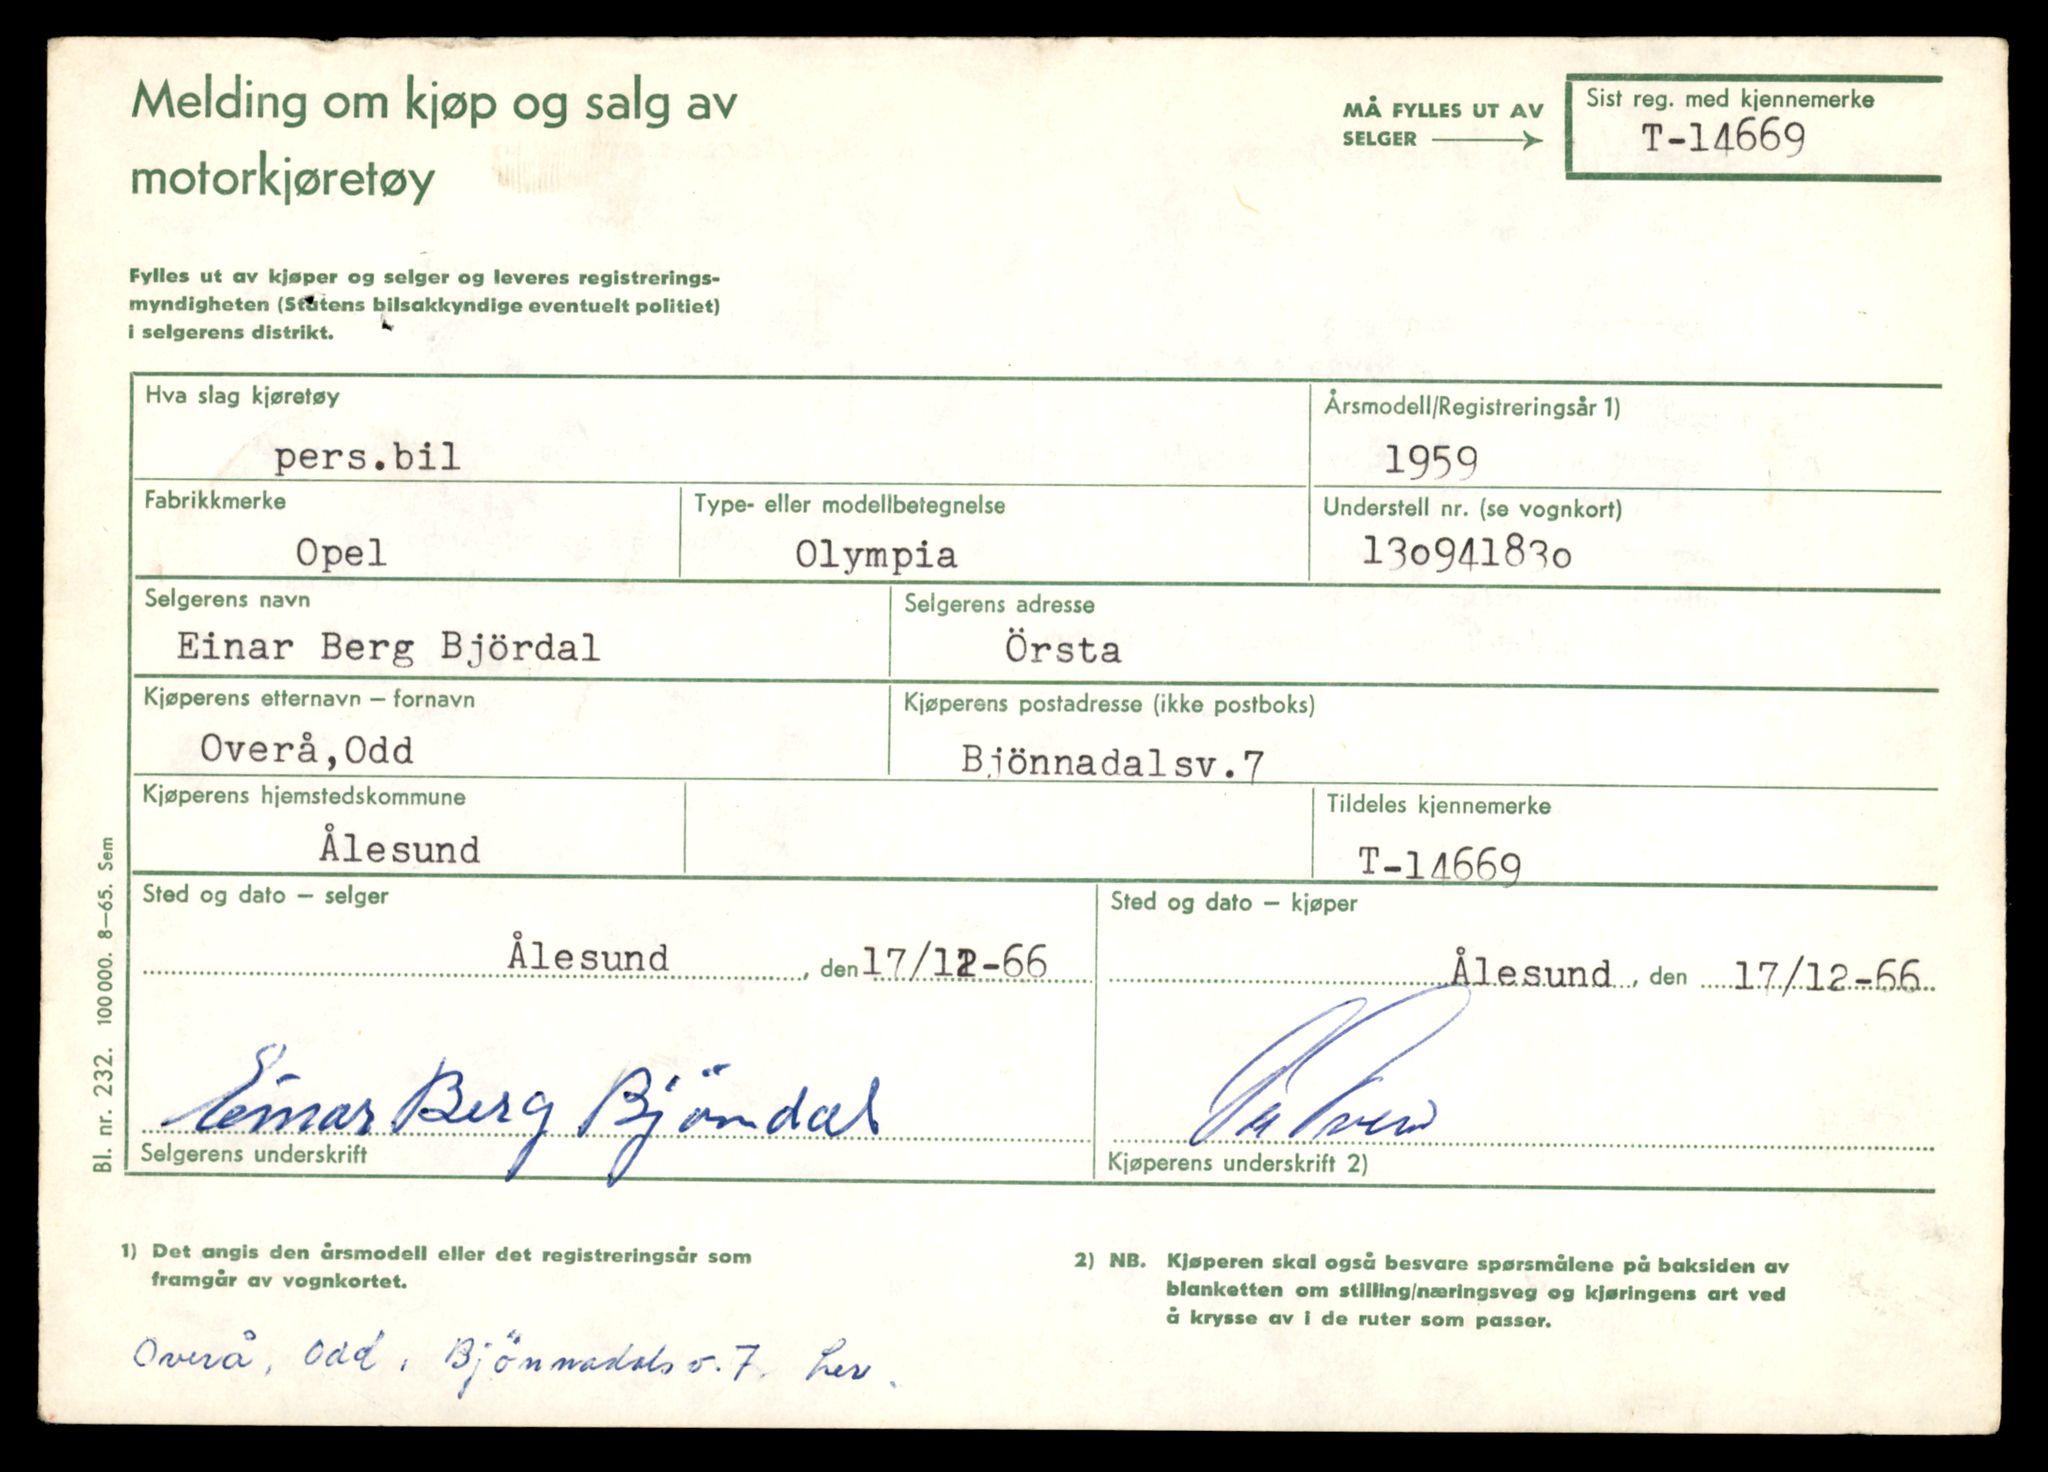 Melding om kjøp og salg av
motorkjøretøy
MÅ FYLLES UT AV
SELGER
Sist reg. med kjennemerke
T-14669
Fylles ut av kjøper og selger og leveres registrerings-
myndigheten (Statens bilsakkyndige eventuelt politiet)
i selgerens distrikt.
Hva slag kjøretøy
pers.bil
Årsmodell/Registreringsår 1)
1959
Fabrikkmerke
Opel
Type- eller modellbetegnelse
Olympia
Understell nr. (se vognkort)
130941830
Selgerens navn
Einar Berg Björdal
Selgerens adresse
Örsta
Kjøperens etternavn – fornavn
Overå,Odd
Kjøperens postadresse (ikke postboks)
Bjönnadalsv.7
Kjøperens hjemstedskommune
Ålesund
Tildeles kjennemerke
T-14669
Sted og dato – selger
Ålesund, den 17/12-66
Sted og dato – kjøper
Ålesund, den 17/12-66
Einar Berg Björdal
Selgerens underskrift
Kjøperens underskrift 2)
Bl. nr. 232. 100 000. 8–65. Sem
1) Det angis den årsmodell eller det registreringsår som
framgår av vognkortet.
2) NB. Kjøperen skal også besvare spørsmålene på baksiden av
blanketten om stilling/næringsveg og kjøringens art ved
å krysse av i de ruter som passer.
Overå, Odd, Bjönnadalsv. 7. her.